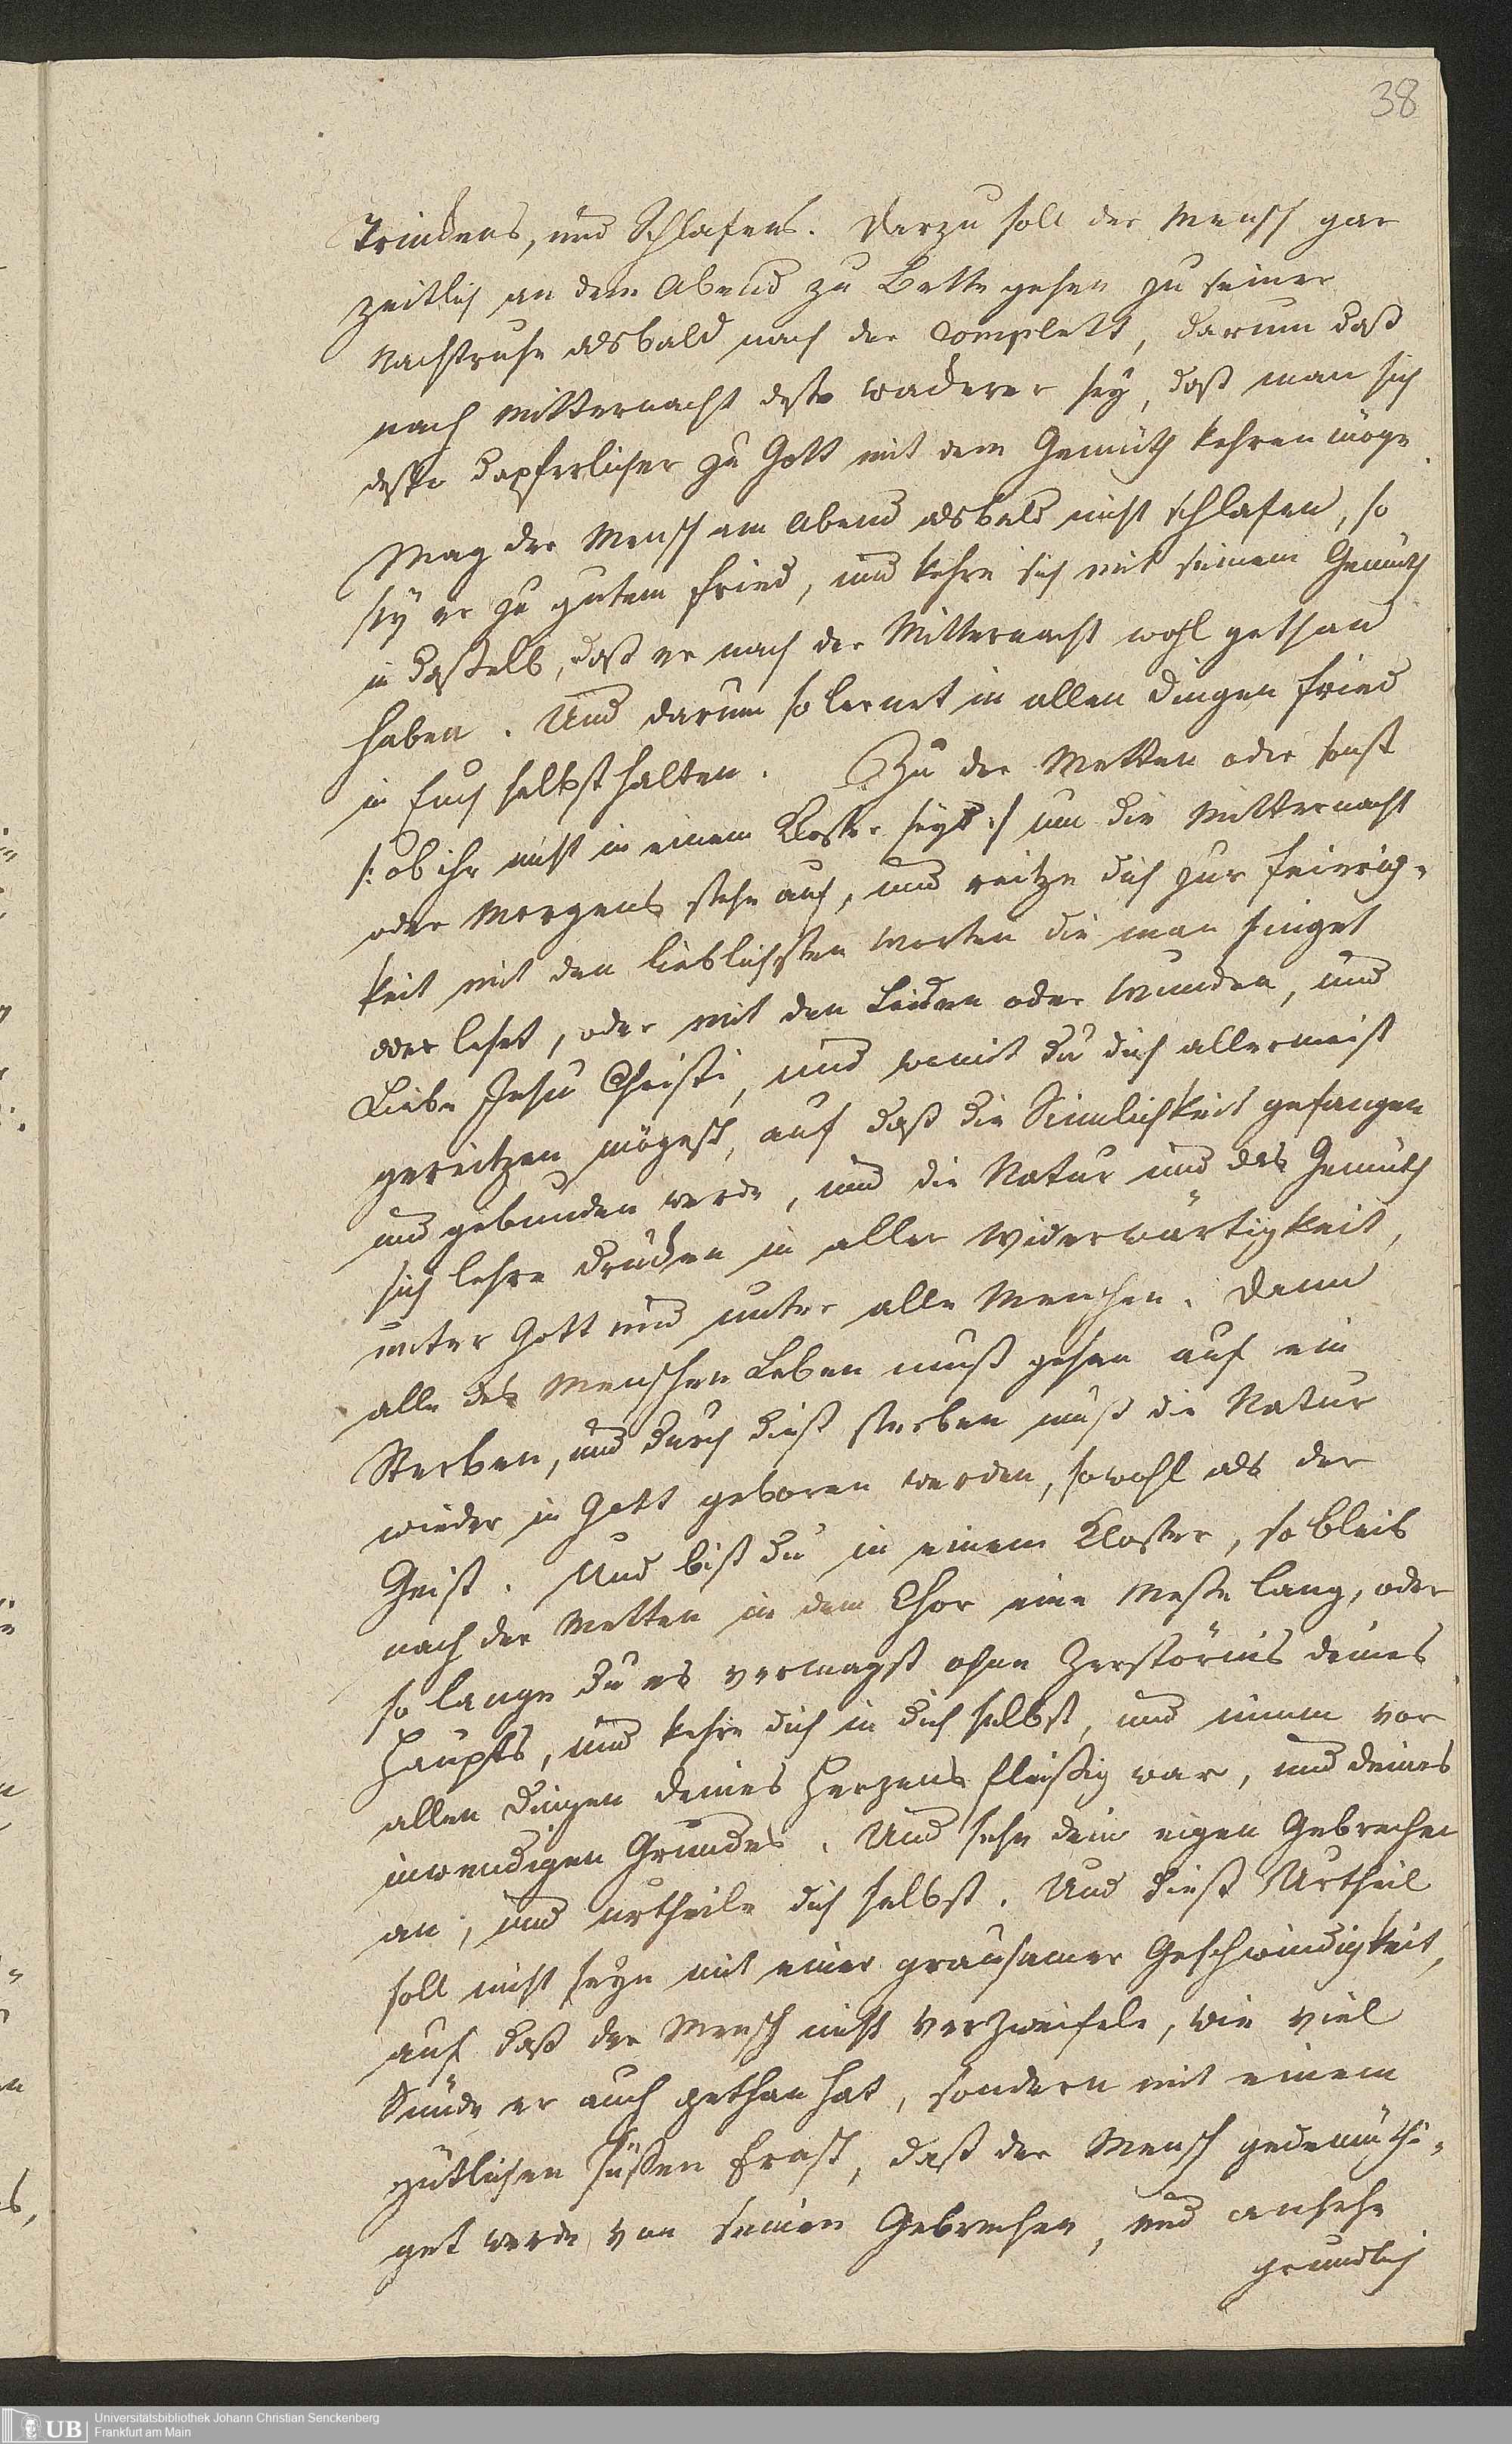 38
Trinckens, und Schlafens. Darzu soll der Mensch gar
zeitlich an dem Abend zu Bette gehen zu seiner
Nachtruhe alsbald nach der Complett, darum daß
nach Mitternacht desto wackerer sey, daß man sich
desto dapferlicher zu Gott mit dem Gemüth kehren möge.
Mag der Mensch am Abend alsbald nicht schlafen, so
sey er zu gutem Fried, und kehre sich mit seinem Gemüth
in daßelb, daß er nach der Mitternacht wohl gethan
haben. Und darum so lernet in allen Dingen Fried
in Euch selbst halten. Zu der Metten oder sonst
/: ob ihr nicht in einem Closter seyd :/ um die Mitternacht
oder Morgens stehe auf, und reitze dich zur Feurig-
keit mit den lieblichsten Worten die man singet
oder leset, oder mit den Leiden oder Wunden, und
Liebe Jesu Christi, und womit du dich allermeist
gereitzen mögest, auf daß die Sinnlichkeit gefangen
und gebunden werde, und die Natur und das Gemüth
sich lehre drucken in aller Widerwärtigkeit,
unter Gott und unter alle Menschen. Denn
alle des Menschen Leben muß gehen auf ein
Sterben, und durch dieß sterben muß die Natur
wieder in Gott geboren werden, sowohl als der
Geist. Und bist du in einem Closter, so bleib
nach der Metten in dem Chor eine Meße lang, oder
so lange du es vermagst ohne Zerstörnis deines
Haupts, und kehre dich in dich selbst, und nimm vor
allen Dingen deines Herzens fleißig war, und deines
inwendigen Grundes. Und sehe dein eigen Gebrechen
an, und urtheile dich selbst. Und dieß Urtheil
soll nicht seyn mit einer grausamer Geschwindigkeit,
auf daß der Mensch nicht verzweifele, wie viel
Sünde er auch gethan hat, sondern mit einem
gütlichen süßen Ernst, daß der Mensch gedemüthi-
get werde von seinen Gebrechen, und ansehe
grundlich
UB
Universitätsbibliothek Johann Christian Senckenberg
Frankfurt am Main